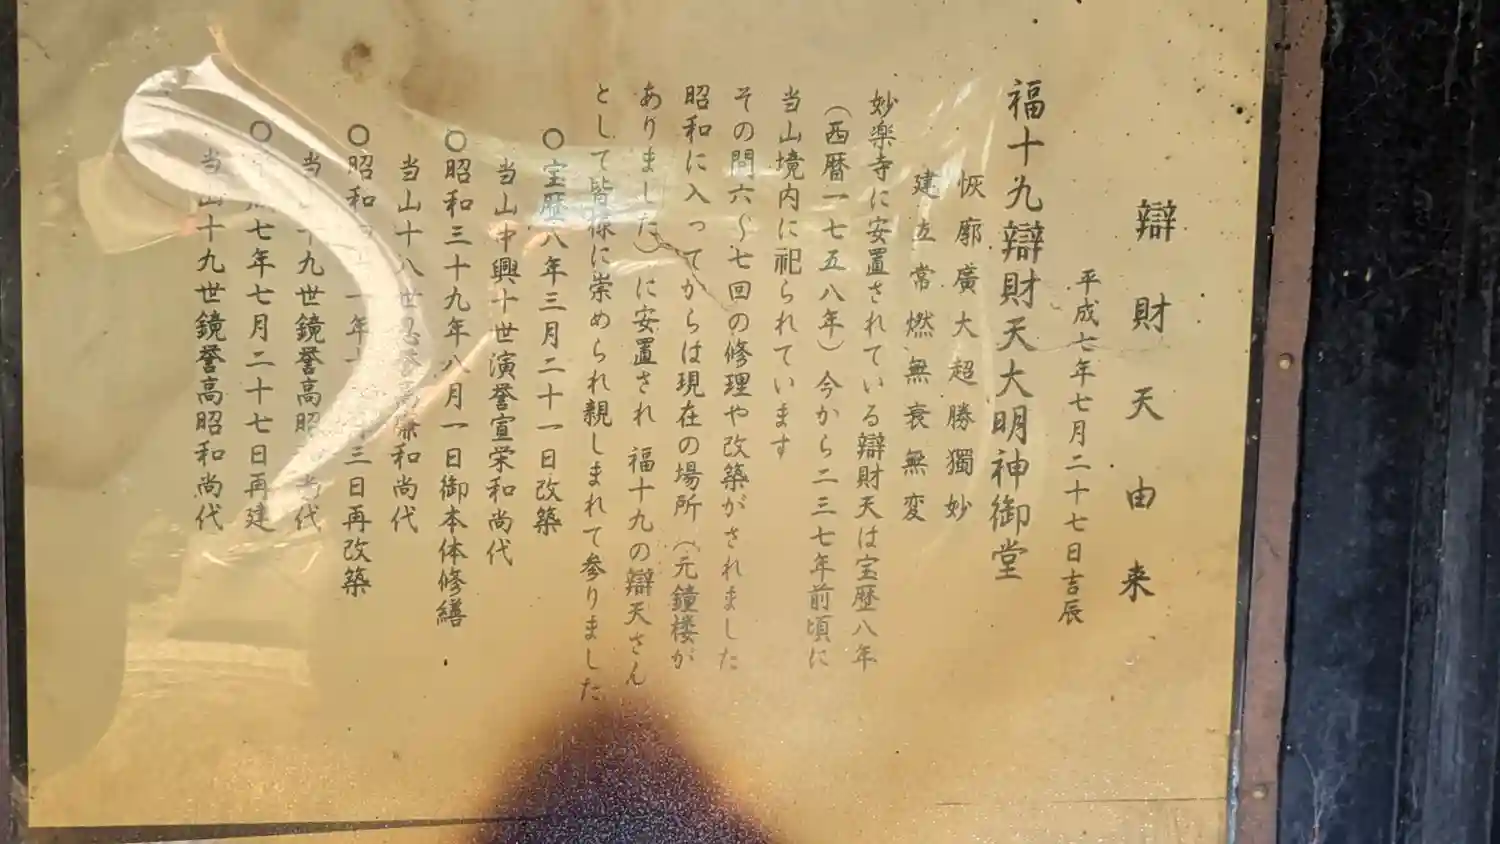 辯財天由来
平成七年七月二十七日吉辰
福十九辯財天大明神御堂
恢廓廣大超勝獨妙
建立常燃無衰無変
妙楽寺に安置されている辯財天は宝歴八年
(西暦一七五八年)今から二三七年前頃に
当山境内に祀られています
その間六〜七回の修理や改築がされました
昭和に入ってからは現在の場所(元鐘楼が
ありました)に安置され 福十九の辯天さん
として皆様に崇められ親しまれて参りました
○宝歴八年三月二十一日改築
当山中興十世演誉宣栄和尚代
○昭和三十九年八月一日御本体修繕
当山十八世忍誉高謙和尚代
○昭和 年 三日再改築
当 十九世鏡誉高昭 尚代
○ 七年七月二十七日再建
当山十九世鏡誉高昭和尚代